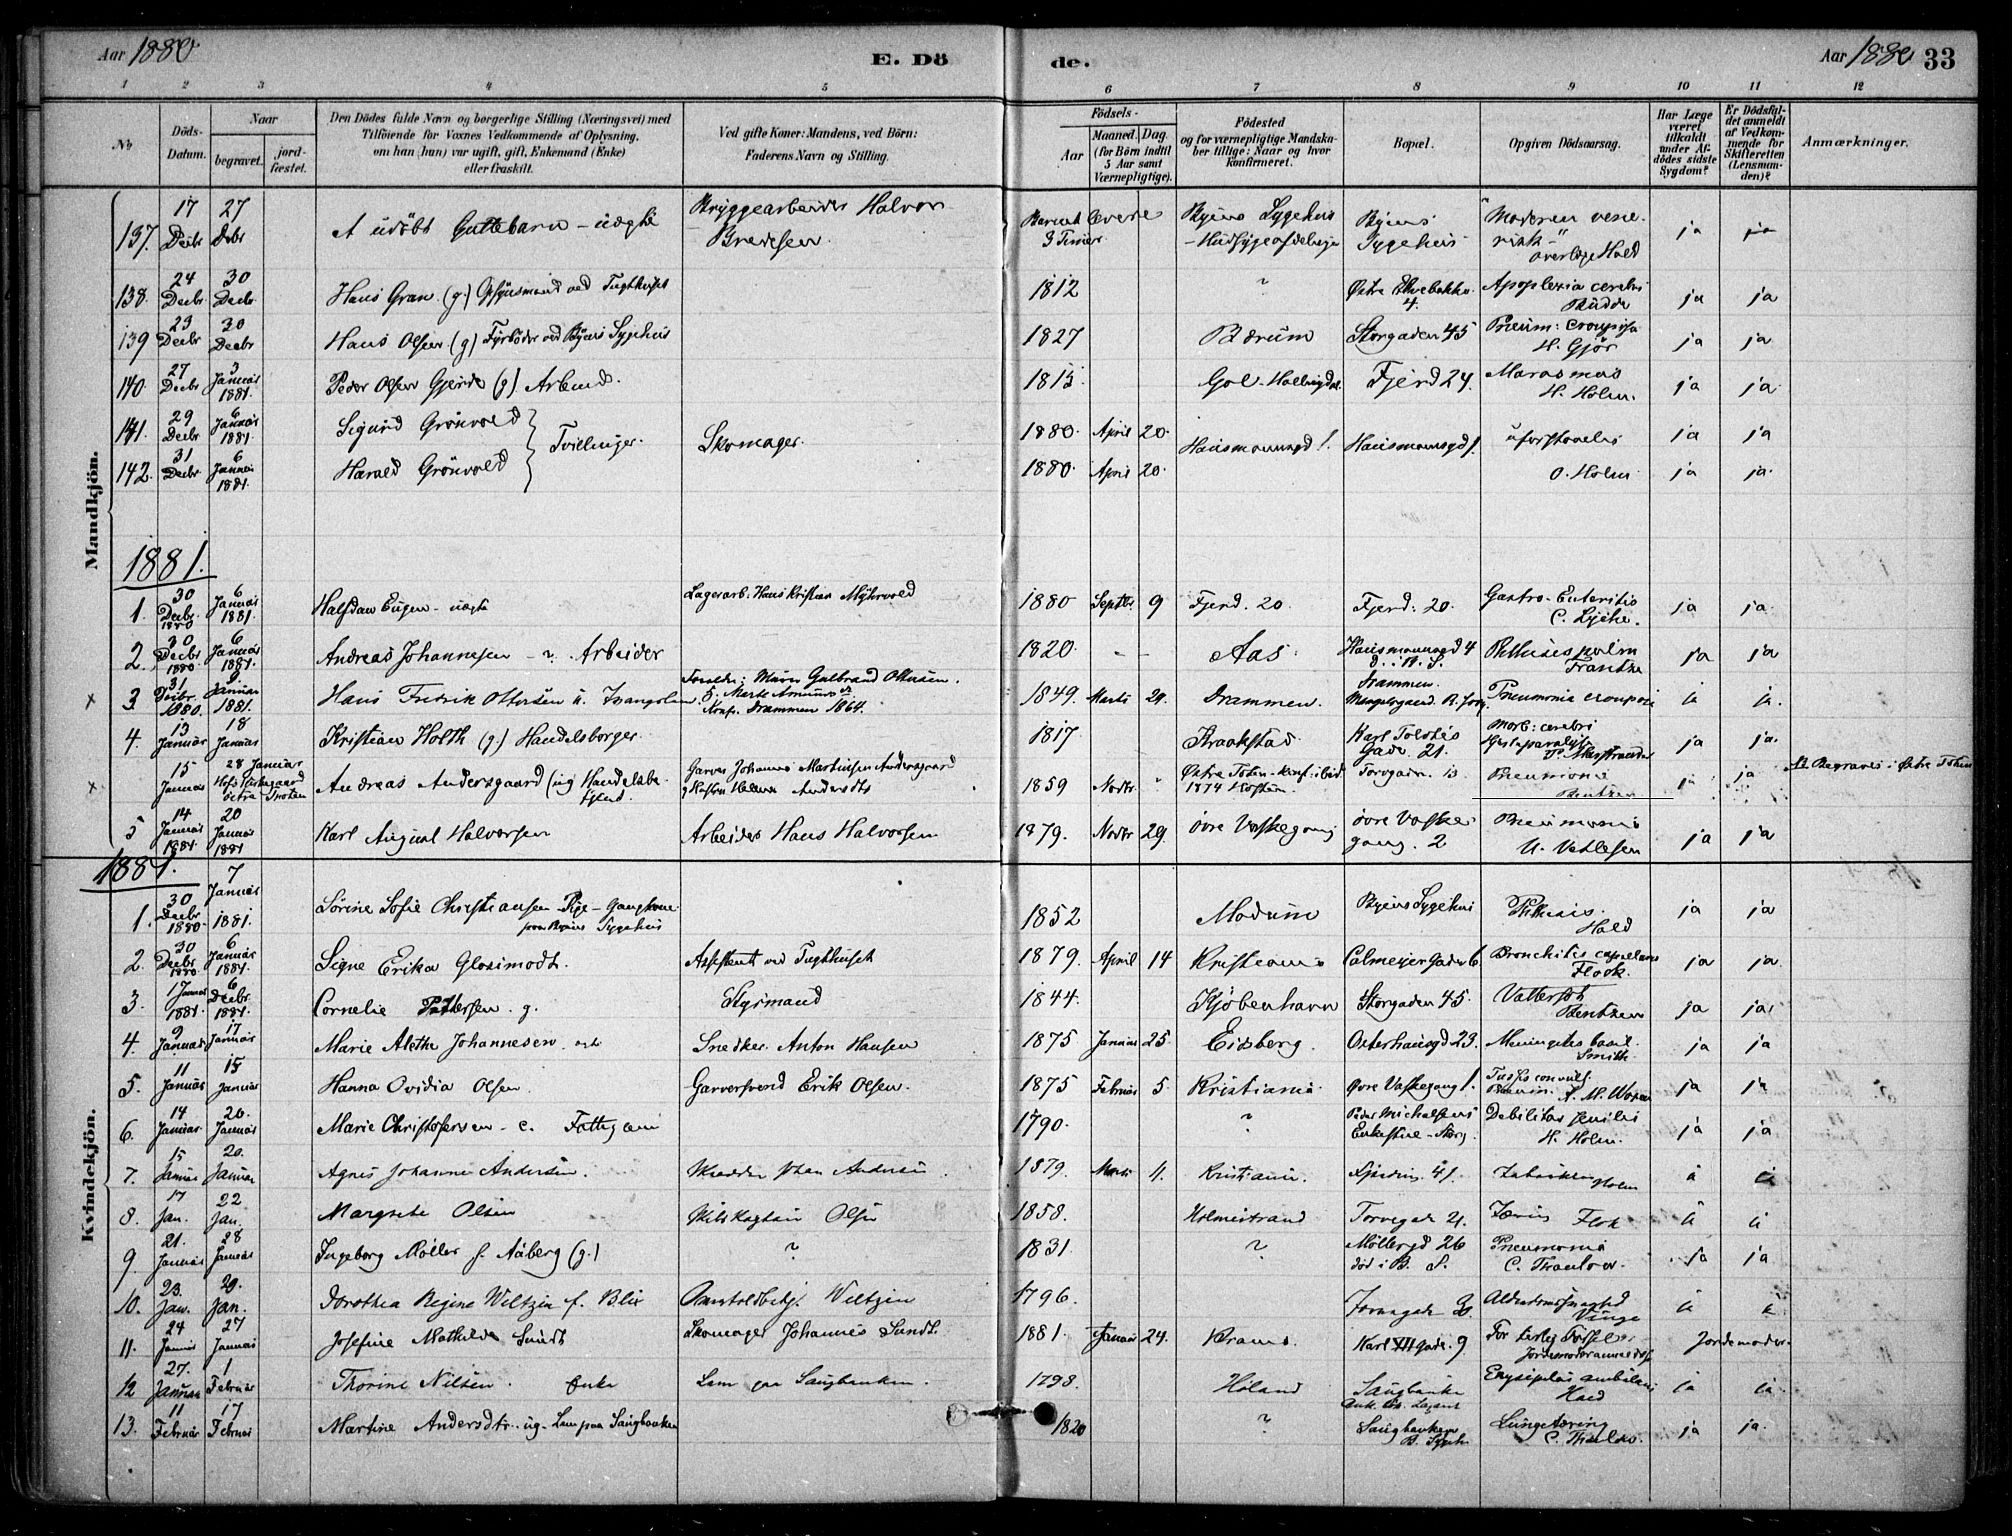 Aar 1880
E. Dö
de.
Aar 1880
33
1 2 3 4 5 6 7 8 9 10 11 12
No
Döds-Datum.
Naar
begravet.
jord-fæstet.
Den Dödes fulde Navn og borgerlige Stilling (Næringsvei) med
Tilföiende for Voxnes Vedkommende af Oplysning,
om han (hun) var ugift, gift, Enkemand (Enke)
eller fraskilt.
Ved gifte Koner: Mandens, ved Börn:
Faderens Navn og Stilling.
Födsels-
Aar
Maaned. Dag.
(for Börn indtil
5 Aar samt
Værnepligtige).
Födested
og for værnepligtige Mandska-
ber tillige: Naar og hvor
konfirmeret.
Bopæl.
Opgiven Dödsaarsag.
Har Læge
været
tilkaldt
under Af-
dödes sidste
Sygdom?
Er Dödsfal-
det anmeldt
af Vedkom-
mende for
Skifteretten
(Lensman-
den)?
Anmærkninger.
Mandkjön.
137. 17 Decbr 27 Debr Et udöbt Guttebarn - uægte Bryggearbeider Halvor Bredesen. Barnet levede 3 Timer Byens Sygehus - Hudsygeafdelingen Byens Sygehus "Moderen vene-risk" Overlæge Hald ja ja
138. 24 Decbr 30 Decbr. Hans Gran (g.) Opsynsmand ved Tugthuset 1812 ? Östre Elvebakke 4. Apoplexia cerebri Budde ja ja
139 23 Decbr 30 Decbr Hans Olsen (g) Fyrböder ved Byens Sygehus 1827 Bærum Storgaden 45 Pneum: crouposa H. Gjör ja ja
140. 27 Decbr 3 Januar 1881. Peder Olsen Gjerde (g) Arbeids. 1815 Gol - Hallingdal Fjerd 24. Marasmus H. Holm. ja ja
141. 29 Decbr 6 Januar 1881. Sigurd Grönvold } Tvillinger. Skomager. 1880. April 20. Hausmannsgd 1. Hausmannsgd 1. uforstaaelig ja ja
142. 31 Decbr 6 Januar 1881. Harald Grönvold 1880. April 20. O. Holm ja ja.
1881.
1. 30 Decbr 1880 6 Januar 1881. Halfdan Eugen - uægte Lagerarb. Hans Kristian Myhrvold 1880 Septbr 9 Fjerd. 20. Fjerd. 20. Gastro-Enteritis C. Lyche. ja ja.
2. 30 Decbr 1880. 6 Januar 1881. Andreas Johannesen - ? Arbeider 1820. Aas. Hausmannsgd 4 d. i R. S. Phthisis pulm Frantzen ja ja
x 3. 31 Decbr 1880. Januar 1881. Hans Fredrik Ottersen u. Forældre: Murer Gulbrand Ottersen. Konf. Drammen 1864. 1849. Marts 29. Drammen. Drammen. Pneumonia crouposa ja ja.
4. 13 Januar 18 Januar Kristian Holth (g.) Handelsborger. 1817 Kraakstad Karl Johans Gade. 21. Morb: cerebri Hjerteparalyse ja ja.
x 15 Januar 28 Januar Andreas Andersgaard (ug) Handelsbetjent. Garver Johannes Martinsen Andersgaard 1859 Novbr. Östre Toten - konf. ibid 1874 Hösten. Torvgaden 13. Pneumonia Bentzen ja ja At Begraves i Östre Toten
5 14 Januar 1881 20 Januar 1881 Karl August Halvorsen Arbeider Hans Halvorsen 1879. Novbr 29. Övre Vaskegang Övre Vaske-gang. 2 Pneumonia U. Vetlesen ja ja
Kvindekjön.
1881.
1. 30 Decbr 1880 7 Januar 1881. Sörine Sofie Christiansen - Pige - Gangkone paa Byens Sygehus 1852 Modum Byens Sygehus Phthisis. Hald ja ja
2. 30 Decbr 1880 6 Januar 1881. Signe Erika Glosimodt. Assistent ved Tugthuset 1879. April 14 Kristiania Calmeyer Gaden 6 Bronchitis capillaris Flook. ja ja.
3. 1 Januar 1881. 6 Decbr. 1881. Cornelie Pettersen. g. Styrmand 1844. Kjöbenhavn Storgaden 45. Vattersot Bentzen ja ja
4. 9 Januar 17 Januar Marie Alethe Johannesen Snedker Anton Hansen 1875 Januar 25. Eidsberg. Osterhausgd 23. Meningitis basil. Smith ja ja
5. 11 Januar 15 Januar Hanna Ovidia Olsen. Garversvend Erik Olsen. 1875 Februar 5. Kristiania. Övre Vaskegang 1. Tussis convuls. ja ja
6. 14 Januar 20. Januar Marie Christofersen - e. Fattigem 1790. ? Peder Michelsens Enkestue - Storg. Debilitas senilis H. Holm. ja ja
7. 15 Januar 20. Januar Agnes Johanne Andersen. Skrædder Johan Andersen. 1879. Marts 11. Kristiania. Fjerding. 41. Holm ja ja
8. 17 Jan. 22 Jan. Margrete Olsen Skibskaptain Olsen 1858. Holmestrand Torvegade 21. Flook ja ja
9 21. Januar 28 Januar Ingeborg Möller f. Aaberg (g.) ? 1831. ? Möllergd 26 död i B. S. Pneumonia C. Thaulow. ja ja
10. 23. Jan. 29. Jan. Dorothea Regine Wiltzin f. Blix Wiltzin 1796. Alderdomssvaghed Vinge ja ja
11. 24 Januar 27 Januar Josefine Mathilde Sundt Skomager Johannes Sundt. 1881. Januar 24. Karl XII Gade. 9 For tidlig Födsel Jordemoder.
12 27. Januar 1 Februar Thorine Nilsen. Enke Lem paa Saugbanken. 1798. Höland Saugbanken Erysipelas ambulans Hald ja ja
13. 11 Februar 17 Februar Martine Andersdtr. ug. Lem paa Saugbanken 1820 ? Saugbanken B. Sygeh. Lungetæring C. Thaulow. ja ja.